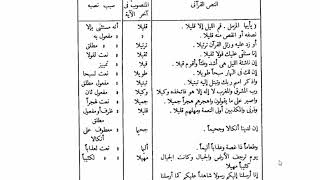 النص القرآنى | المنصوب فى آخر الآية | سبب نصبه
( يأيها المزمل . قم الليل إلا قليلا . | قليلا | أنه مستثنى بإلا
نصفه أو انقص منه قليلا . | قليلا | » مفعول به
أو زد عليه و رتل القرآن ترتيلا . | ترتيلا | » مطلق
إنا سنلقى عليك قولا ثقيلا . | ثقيلا | » نعت لقولا
إن ناشئة الليل هى أشد وطأ وأقوم قيلا . | قيلا | » تمييز
إن لك فى النهار سبحا طويلا . | طويلا | » نعت لسبحا
واذكر اسم ربك وتبتل إليه تبتيلا . | تبتيلا | » مفعول مطلق
رب المشرق والمغرب لا إله إلا هو فاتخذه وكيلا | وكيلا | » مفعول ثان
واصبر على ما يقولون واهجرهم هجراً جميلا . | جميلا | » نعت لهجراً
وذرنى والمكذبين أولى النعمة ومهلهم قليلا . | قليلا | » ظرف أو مفعول مطلق
إن لدينا أنكالا وجحيماً . | جحيما | » معطوف على أنكالا
وطعاما ذا غصة وعذابا أليماً . | أليما | » نعت لعذاباً
يوم ترجف الأرض والجبال وكانت الجبال كثيباً مهيلا | مهيلا | » نعت لكثيباً
إنا أرسلنا إليكم رسولا شاهداً عليكم كما أرسلنا